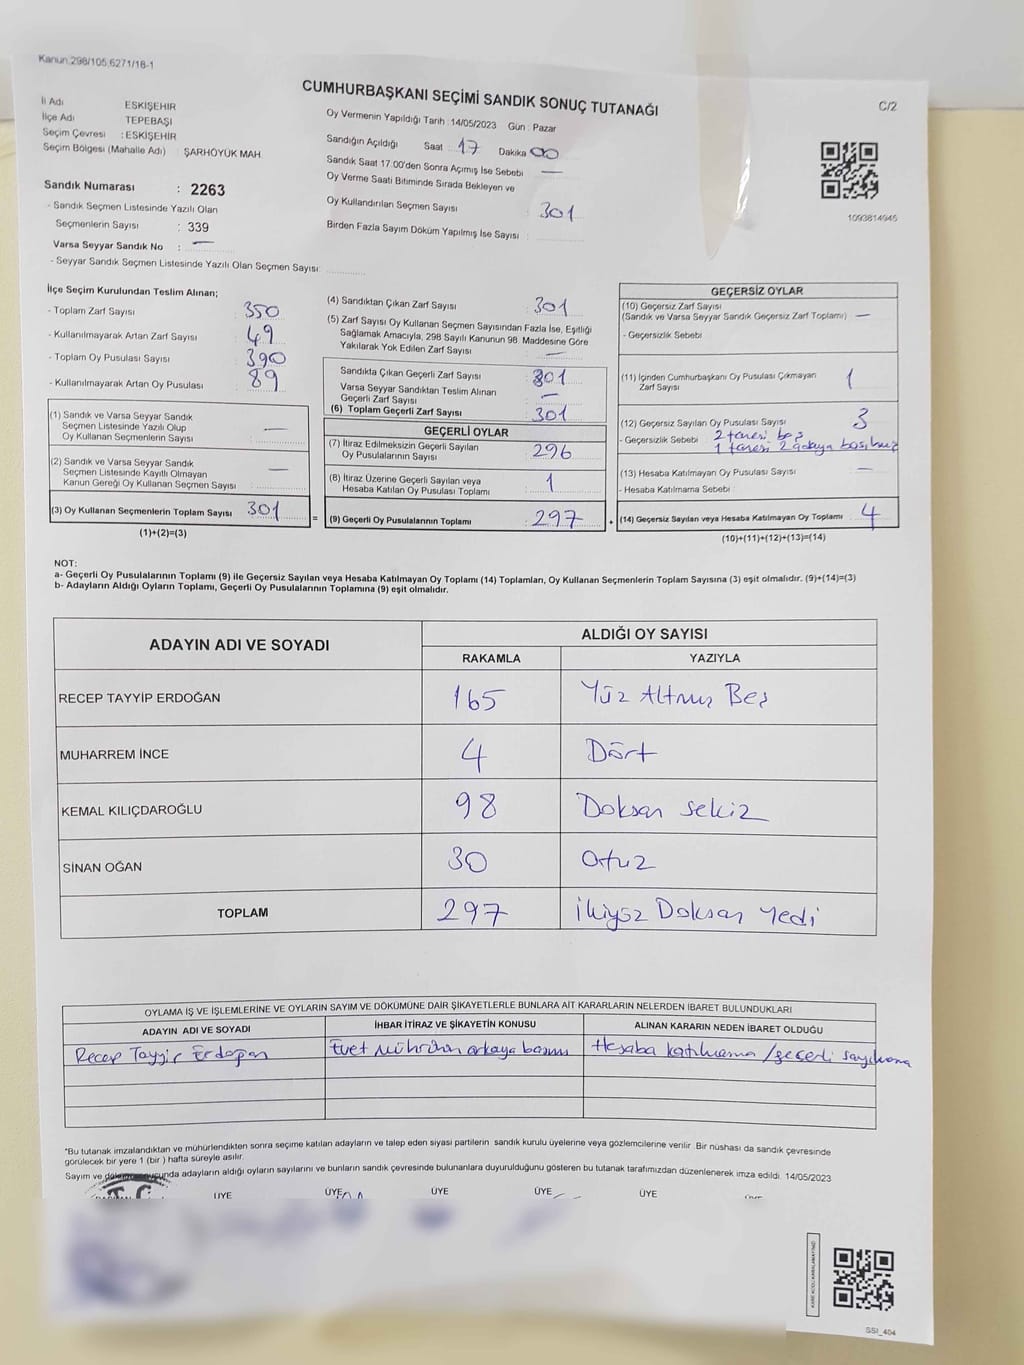 Kanun:298/105,6271/18-1
CUMHURBAŞKANI SEÇİMİ SANDIK SONUÇ TUTANAĞI
C/2
İl Adı ESKİŞEHİR
İlçe Adı TEPEBAŞI
Seçim Çevresi : ESKİŞEHİR
Seçim Bölgesi (Mahalle Adı) : ŞARHÖYÜK MAH
Oy Vermenin Yapıldığı Tarih :14/05/2023 Gün : Pazar
Sandığın Açıldığı Saat : 17 Dakika 00
Sandık Saat 17.00'den Sonra Açımış İse Sebebi —
Oy Verme Saati Bitiminde Sırada Bekleyen ve
Oy Kullandırılan Seçmen Sayısı : 301
Birden Fazla Sayım Döküm Yapılmış İse Sayısı :
1093814945
Sandık Numarası : 2263
- Sandık Seçmen Listesinde Yazılı Olan
Seçmenlerin Sayısı : 339
Varsa Seyyar Sandık No : —
- Seyyar Sandık Seçmen Listesinde Yazılı Olan Seçmen Sayısı:
İlçe Seçim Kurulundan Teslim Alınan;
- Toplam Zarf Sayısı : 350
- Kullanılmayarak Artan Zarf Sayısı : 49
- Toplam Oy Pusulası Sayısı : 390
- Kullanılmayarak Artan Oy Pusulası : 89
(1) Sandık ve Varsa Seyyar Sandık
Seçmen Listesinde Yazılı Olup
Oy Kullanan Seçmenlerin Sayısı : —
(2) Sandık ve Varsa Seyyar Sandık
Seçmen Listesinde Kayıtlı Olmayan
Kanun Gereği Oy Kullanan Seçmen Sayısı : —
(3) Oy Kullanan Seçmenlerin Toplam Sayısı 301
(1)+(2)=(3)
(4) Sandıktan Çıkan Zarf Sayısı : 301
(5) Zarf Sayısı Oy Kullanan Seçmen Sayısından Fazla İse, Eşitliği
Sağlamak Amacıyla, 298 Sayılı Kanunun 98. Maddesine Göre
Yakılarak Yok Edilen Zarf Sayısı : —
Sandıkta Çıkan Geçerli Zarf Sayısı : 301
Varsa Seyyar Sandıktan Teslim Alınan
Geçerli Zarf Sayısı : —
(6) Toplam Geçerli Zarf Sayısı : 301
GEÇERLİ OYLAR
(7) İtiraz Edilmeksizin Geçerli Sayılan
Oy Pusulalarının Sayısı : 296
(8) İtiraz Üzerine Geçerli Sayılan veya
Hesaba Katılan Oy Pusulası Toplamı : 1
= (9) Geçerli Oy Pusulalarının Toplamı : 297 +
GEÇERSİZ OYLAR
(10) Geçersiz Zarf Sayısı
(Sandık ve Varsa Seyyar Sandık Geçersiz Zarf Toplamı) : —
- Geçersizlik Sebebi :
(11) İçinden Cumhurbaşkanı Oy Pusulası Çıkmayan
Zarf Sayısı : 1
(12) Geçersiz Sayılan Oy Pusulası Sayısı : 3
- Geçersizlik Sebebi : 2 tanesi boş
1 tanesi 2 adaya basılmış
(13) Hesaba Katılmayan Oy Pusulası Sayısı : —
- Hesaba Katılmama Sebebi :
(14) Geçersiz Sayılan veya Hesaba Katılmayan Oy Toplamı : 4
(10)+(11)+(12)+(13)=(14)
NOT:
a- Geçerli Oy Pusulalarının Toplamı (9) ile Geçersiz Sayılan veya Hesaba Katılmayan Oy Toplamı (14) Toplamları, Oy Kullanan Seçmenlerin Toplam Sayısına (3) eşit olmalıdır. (9)+(14)=(3)
b- Adayların Aldığı Oyların Toplamı, Geçerli Oy Pusulalarının Toplamına (9) eşit olmalıdır.
ADAYIN ADI VE SOYADI ALDIĞI OY SAYISI
RAKAMLA YAZIYLA
RECEP TAYYİP ERDOĞAN 165 Yüz Altmış Beş
MUHARREM İNCE 4 Dört
KEMAL KILIÇDAROĞLU 98 Doksan sekiz
SİNAN OĞAN 30 Otuz
TOPLAM 297 İkiyüz Doksan Yedi
OYLAMA İŞ VE İŞLEMLERİNE VE OYLARIN SAYIM VE DÖKÜMÜNE DAİR ŞİKAYETLERLE BUNLARA AİT KARARLARIN NELERDEN İBARET BULUNDUKLARI
ADAYIN ADI VE SOYADI İHBAR İTİRAZ VE ŞİKAYETİN KONUSU ALINAN KARARIN NEDEN İBARET OLDUĞU
Recep Tayyip Erdoğan Evet mührünün arkaya basımı Hesaba katılmama / geçerli sayılmama
"Bu tutanak imzalandıktan ve mühürlendikten sonra seçime katılan adayların ve talep eden siyasi partilerin sandık kurulu üyelerine veya gözlemcilerine verilir .Bir nüshası da sandık çevresinde
görülecek bir yere 1 (bir ) hafta süreyle asılır.
Sayım ve adayların aldığı oyların sayılarını ve bunların sandık çevresinde bulunanlara duyurulduğunu gösteren bu tutanak tarafımızdan düzenlenerek imza edildi. 14/05/2023
T.C. ÜYE ÜYE ÜYE ÜYE ÜYE
SSI_404